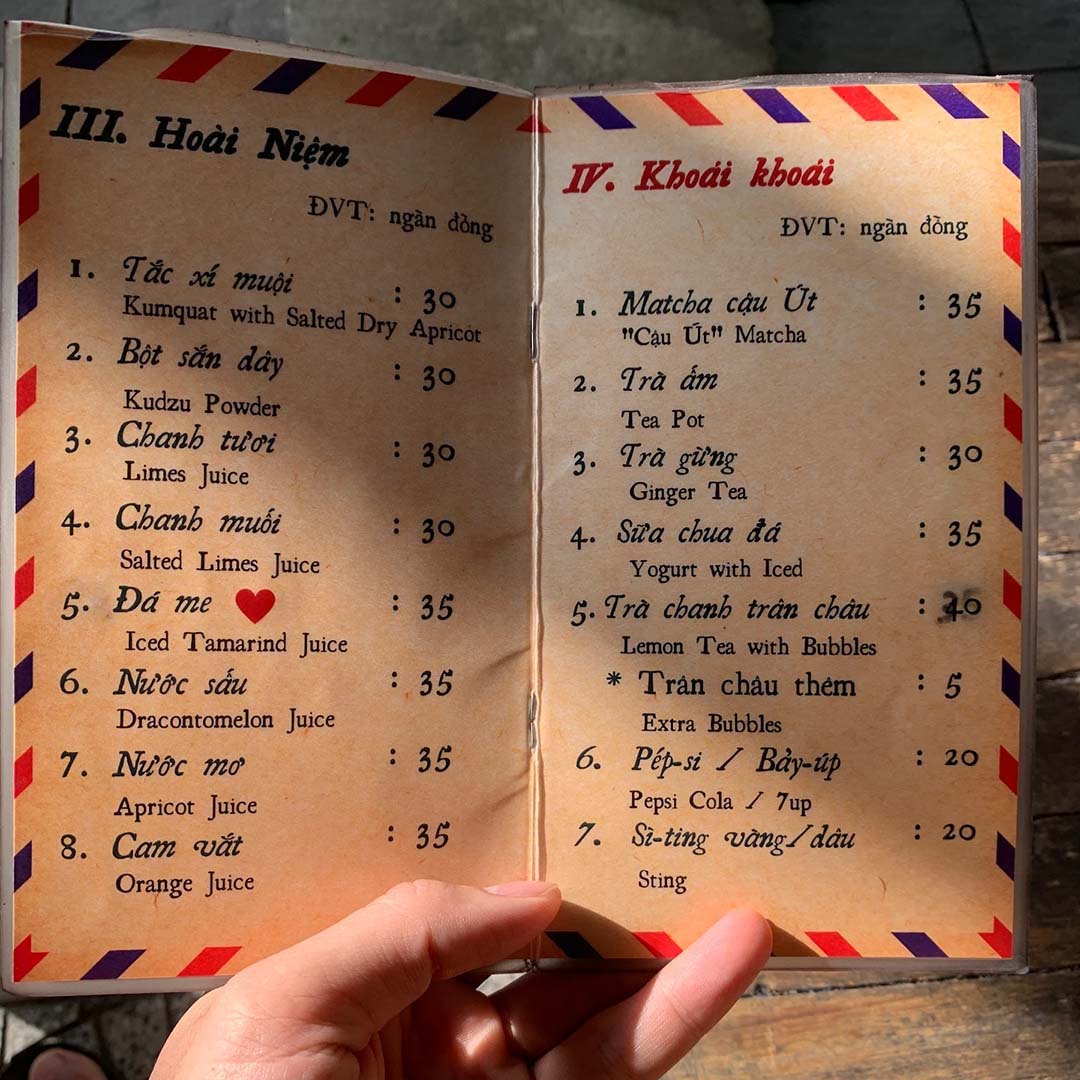 III. Hoài Niệm
ĐVT: ngàn đồng
1. Tắc xí muội : 30
Kumquat with Salted Dry Apricot
2. Bột sắn dây : 30
Kudzu Powder
3. Chanh tươi : 30
Limes Juice
4. Chanh muối : 30
Salted Limes Juice
5. Đá me : 35
Iced Tamarind Juice
6. Nước sấu : 35
Dracontomelon Juice
7. Nước mơ : 35
Apricot Juice
8. Cam vắt : 35
Orange Juice
IV. Khoái khoái
ĐVT: ngàn đồng
1. Matcha cậu Út : 35
"Cậu Út" Matcha
2. Trà ấm : 35
Tea Pot
3. Trà gừng : 30
Ginger Tea
4. Sữa chua đá : 35
Yogurt with Iced
5. Trà chanh trân châu : 40
Lemon Tea with Bubbles
* Trân châu thêm : 5
Extra Bubbles
6. Pép-si / Bảy-úp : 20
Pepsi Cola / 7up
7. Sì-ting vàng/dâu : 20
Sting